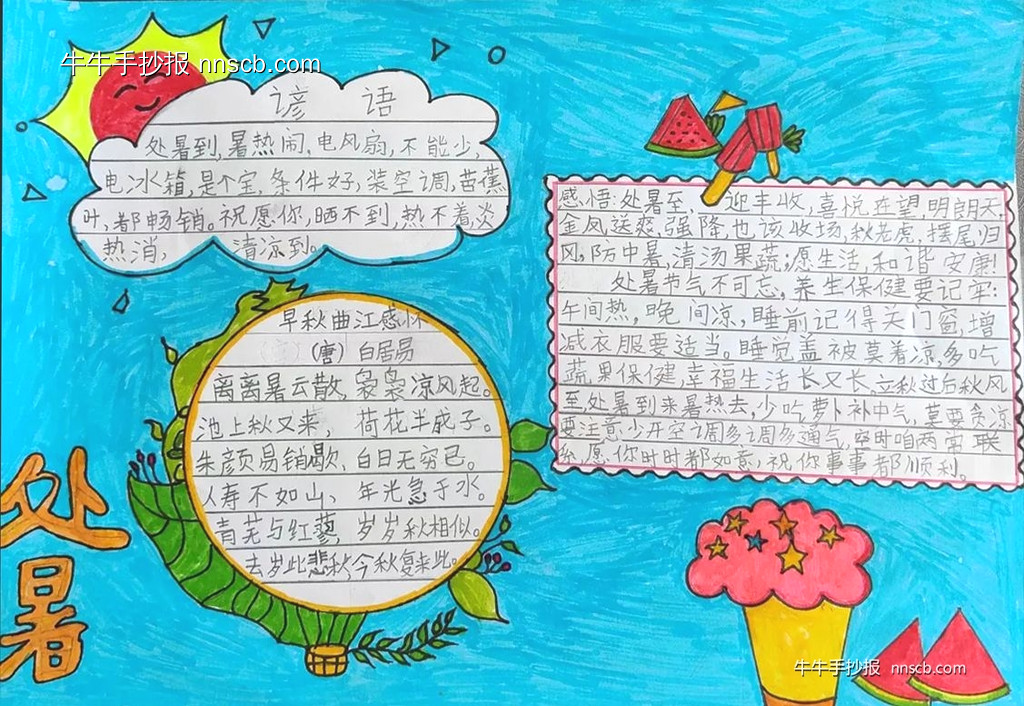 牛牛手抄报 nnscb.com
谚语
处暑到,暑热闹,电风扇,不能少,
电冰箱,是个宝,条件好,装空调,芭蕉
叶,都畅销。祝愿你,晒不到,热不着,炎
热消,清凉到。
早秋曲江感怀
(唐)白居易
离离暑云散,袅袅凉风起。
池上秋又来,荷花半成子。
朱颜易销歇、白日无穷已。
人寿不如山、年光急于水。
青芜与红蓼,岁岁秋相似。
去岁此悲秋,今秋复来此。
处暑
感悟:处暑至,迎丰收,喜悦在望,明朗天,
金凤送爽,强降,也该收场,秋老虎,摆尾归
冈,防中暑,清汤果蔬;愿生活,和谐安康!
处暑节气不可忘,养生保健要记牢:
午间热,晚间凉,睡前记得关门窗,增
减衣服要适当。睡觉盖被莫着凉,多吃
蔬果保健,幸福生活长又长。立秋过后秋风
至,处暑到来暑热去,少吃萝卜补中气,莫要贪凉
要注意,少开空调多调多通气,空时咱两常联
系,愿你时时都如意,祝你事事都顺利。
牛牛手抄报 nnscb.com